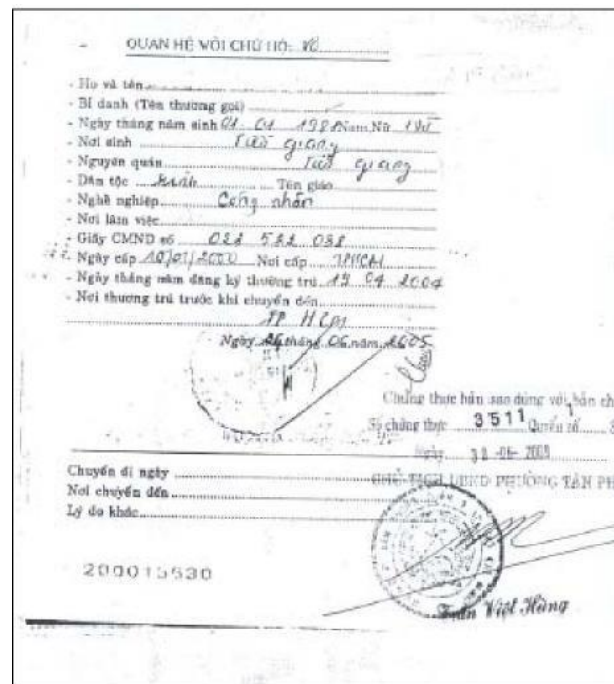 QUAN HỆ VỚI CHỦ HỘ: Vợ
- Họ và tên
- Bí danh (Tên thường gọi)
- Ngày tháng năm sinh 01 01 198 Nam, Nữ Nữ
- Nơi sinh Tiền giang
- Nguyên quán Tiền giang
- Dân tộc kinh Tôn giáo
- Nghề nghiệp Công nhân
- Nơi làm việc
- Giấy CMND số 022 532 038
- Ngày cấp 10/01/2000 Nơi cấp TPHCM
- Ngày tháng năm đăng ký thường trú 19 04 2004
- Nơi thường trú trước khi chuyển đến
TP HCM
Ngày 26 tháng 06 năm 2005
Chứng thực bản sao đúng với bản ch
Số chứng thực 3511 Quyển số 1 S
Ngày -06-
CHỦ TỊCH UBND PHƯỜNG TÂN PH
Chuyển đi ngày
Nơi chuyển đến
Lý do khác
200015630
Trần Việt Hùng